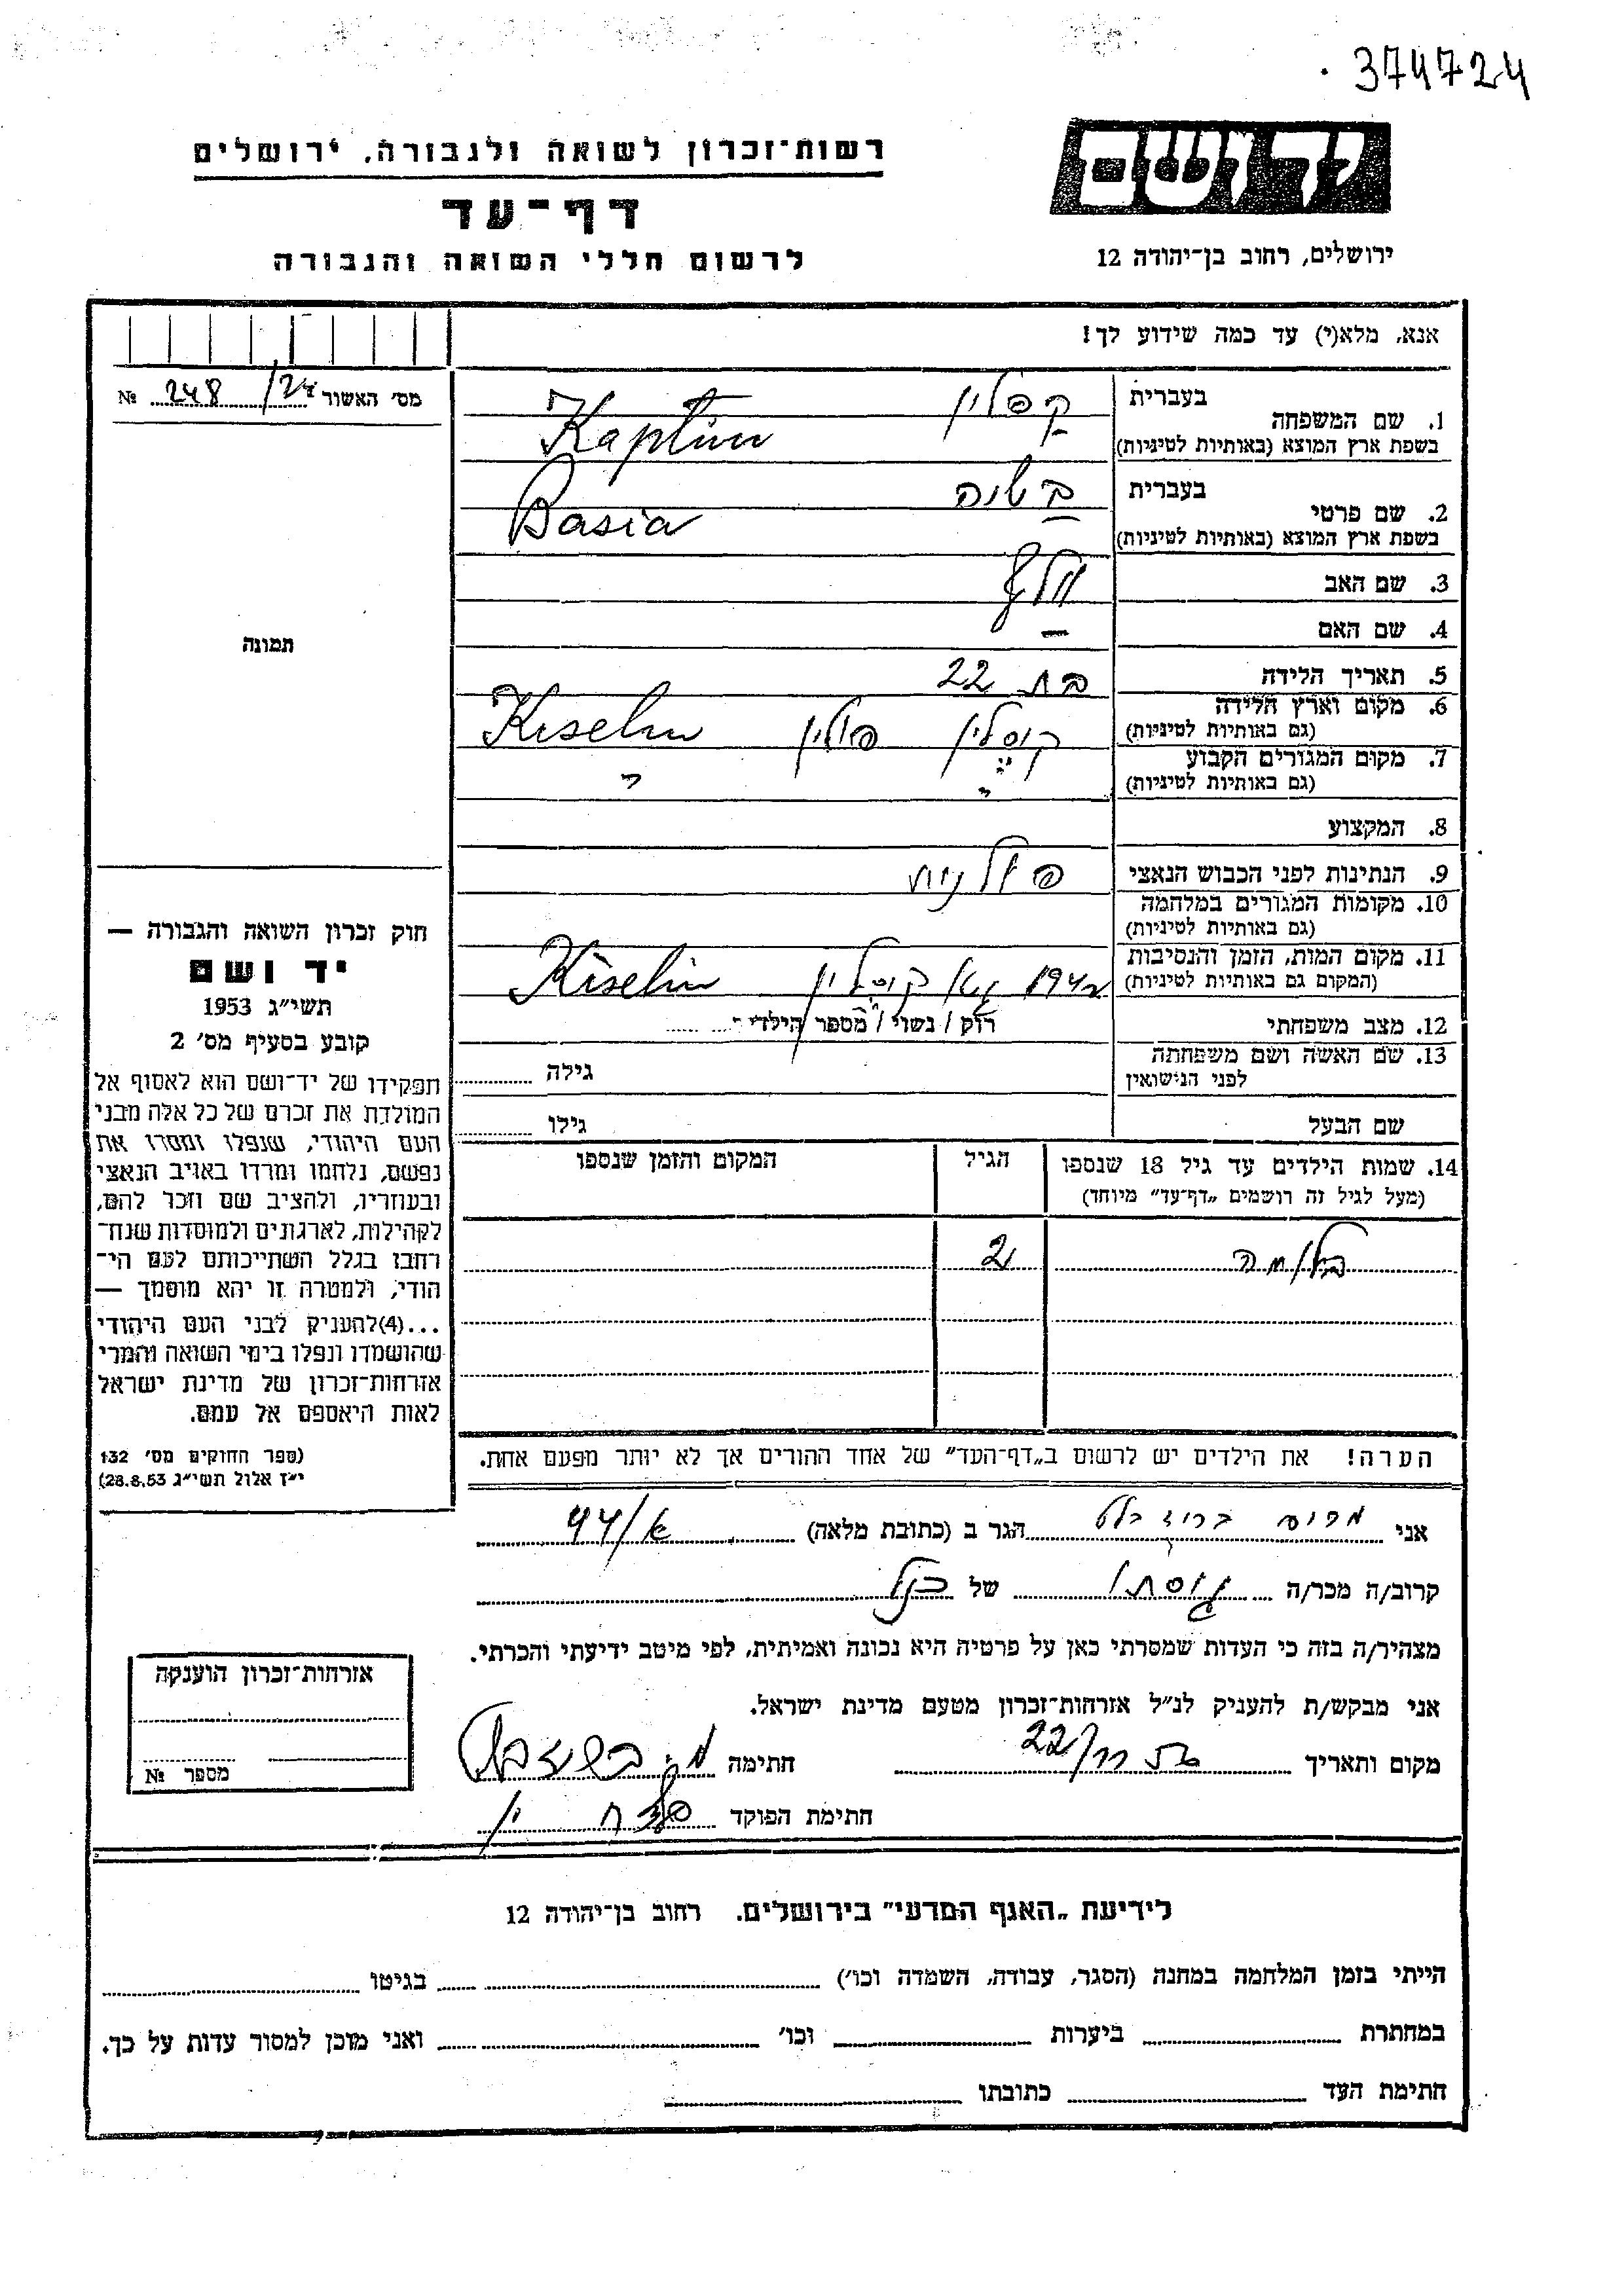 374724
רשות־זכרון לשואה ולגבורה, ירושלים
יד ושם
דף־עד
לרשום חללי השואה והגבורה
ירושלים, רחוב בן־יהודה 12
אנא, מלא(י) עד כמה שידוע לך!
מס' האשור 248/24 №
1. שם המשפחה
בעברית קפלין
בשפת ארץ המוצא (באותיות לטיניות) Kaplin
2. שם פרטי
בעברית בשיה
בשפת ארץ המוצא (באותיות לטיניות) Basia
3. שם האב
4. שם האם –
תמונה
5. תאריך הלידה בת 22
6. מקום וארץ הלידה
(גם באותיות לטיניות) קיסלין פולין Kiselin
7. מקום המגורים הקבוע
(גם באותיות לטיניות) "
8. המקצוע
9. הנתינות לפני הכבוש הנאצי פולנית
10. מקומות המגורים במלחמה
(גם באותיות לטיניות)
11. מקום המות, הזמן והנסיבות
(המקום גם באותיות לטיניות) 1942 גטו קיסלין Kiselin
12. מצב משפחתי רוק / נשוי / מספר הילדים
13. שם האשה ושם משפחתה
לפני הנישואין גילה
שם הבעל גילו
14. שמות הילדים עד גיל 18 שנספו הגיל המקום והזמן שנספו
(מעל לגיל זה רושמים „דף־עד" מיוחד)
בלומה 2
הערה! את הילדים יש לרשום ב„דף־העד" של אחד ההורים אך לא יותר מפעם אחת.
חוק זכרון השואה והגבורה —
יד ושם
תשי״ג 1953
קובע בסעיף מס' 2
תפקידו של יד־ושם הוא לאסוף אל
המולדת את זכרם של כל אלה מבני
העם היהודי, שנפלו ומסרו את
נפשם, נלחמו ומרדו באויב הנאצי
ובעוזריו, ולהציב שם וזכר להם,
לקהילות, לארגונים ולמוסדות שנח־
רבו בגלל השתייכותם לעם הי־
הודי, ולמטרה זו יהא מוסמך —
...(4)להעניק לבני העם היהודי
שהושמדו ונפלו בימי השואה והמרי
אזרחות־זכרון של מדינת ישראל
לאות היאספם אל עמם.
(ספר החוקים מס' 132
י״ז אלול תשי״ג 28.8.53)
אני מרים הגר ב (כתובת מלאה) 44/א
קרוב/ה מכר/ה גיסתו של הנ״ל
מצהיר/ה בזה כי העדות שמסרתי כאן על פרטיה היא נכונה ואמיתית, לפי מיטב ידיעתי והכרתי.
אני מבקש/ת להעניק לנ״ל אזרחות־זכרון מטעם מדינת ישראל.
מקום ותאריך חתימה
חתימת הפוקד
אזרחות־זכרון הוענקה
מספר №
לידיעת „האגף המדעי" בירושלים. רחוב בן־יהודה 12
הייתי בזמן המלחמה במחנה (הסגר, עבודה, השמדה וכו') בגיטו
במחתרת ביערות וכו' ואני מוכן למסור עדות על כך.
חתימת העד כתובתו